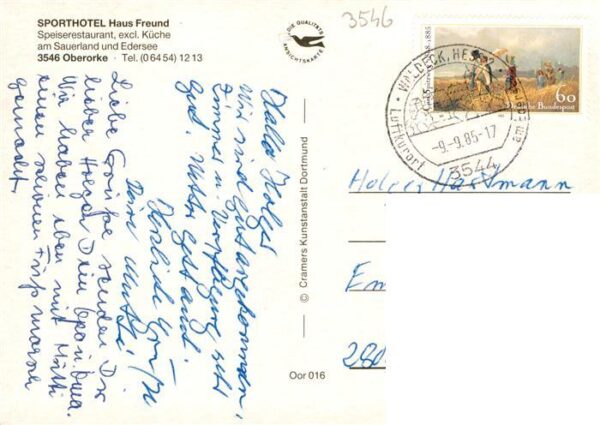 SPORTHOTEL Haus Freund
Speiserestaurant, excl. Küche
am Sauerland und Edersee
3546 Oberorke · Tel. (0 64 54) 12 13
DIE QUALITÄTS
ANSICHTSKARTE
3546
60
Deutsche Bundespost
WALDECK, HESS
Luftkurort
am Ed
-9.-9.85-17
3544
Hallo Holger
Wir sind gut angekommen,
Zimmer u. Verpflegung sehr
gut. Wetter
Herzliche Grüße
Deine Mutti
Liebe Grüsse sendet Dir
lieber Holger Dein Opa u. Oma.
Wir haben eben mit Mutti
einen schönen
gemacht
© Cramers Kunstanstalt Dortmund
Oor 016
Holger Hartmann
Em
280